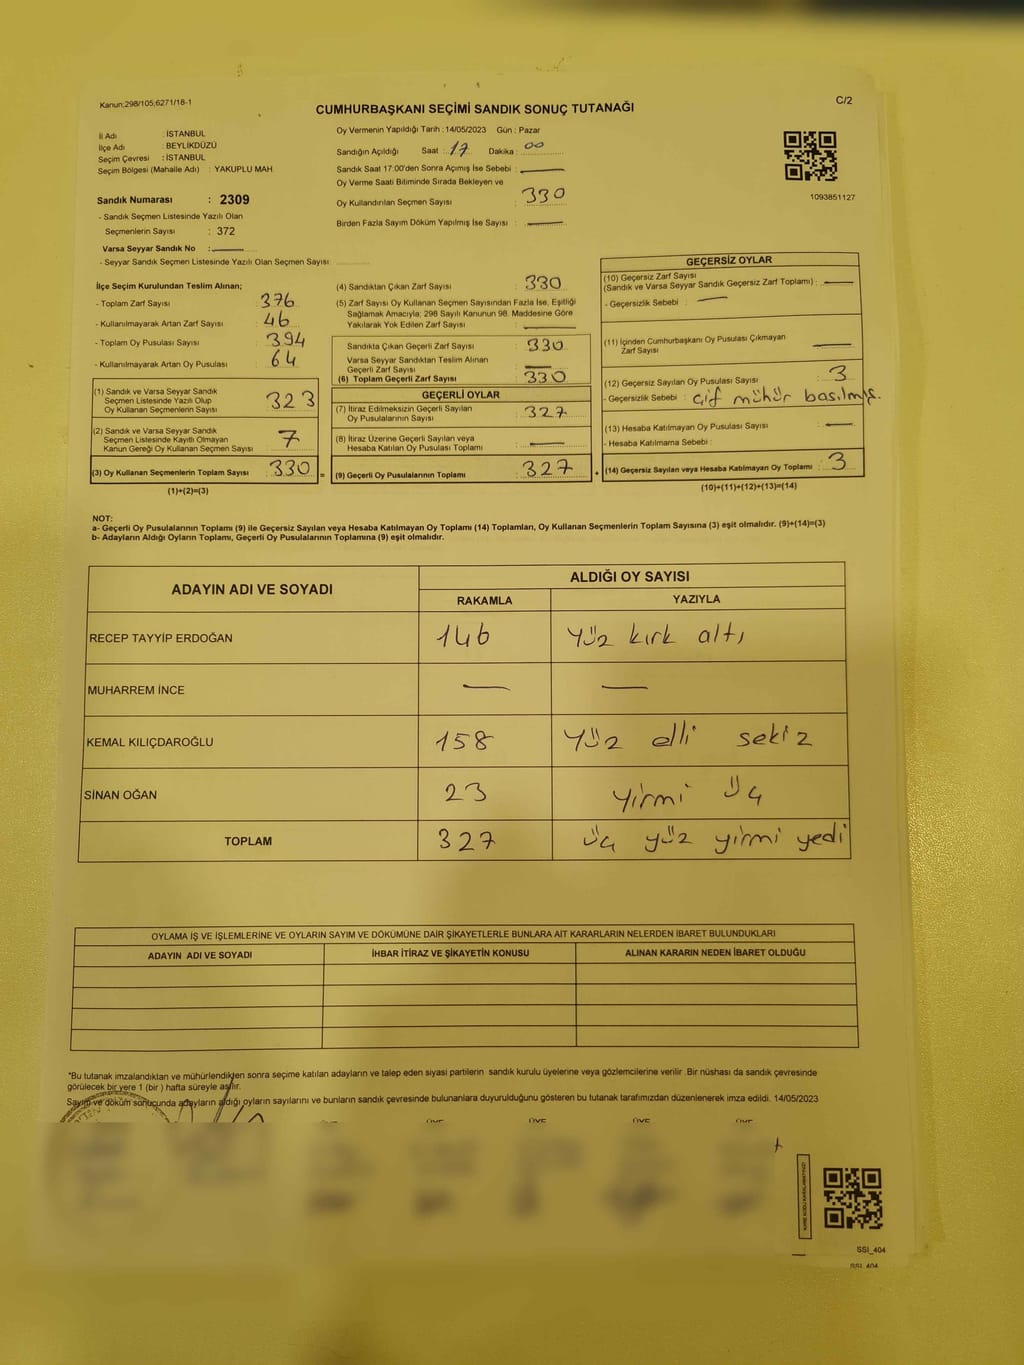 Kanun;298/105;6271/18-1
CUMHURBAŞKANI SEÇİMİ SANDIK SONUÇ TUTANAĞI
C/2
İl Adı : İSTANBUL
İlçe Adı : BEYLİKDÜZÜ
Seçim Çevresi : İSTANBUL
Seçim Bölgesi (Mahalle Adı) : YAKUPLU MAH
Sandık Numarası : 2309
- Sandık Seçmen Listesinde Yazılı Olan
Seçmenlerin Sayısı : 372
Varsa Seyyar Sandık No :
- Seyyar Sandık Seçmen Listesinde Yazılı Olan Seçmen Sayısı:
Oy Vermenin Yapıldığı Tarih : 14/05/2023 Gün : Pazar
Sandığın Açıldığı Saat : 17 Dakika : 00
Sandık Saat 17:00'den Sonra Açımış İse Sebebi :
Oy Verme Saati Bitiminde Sırada Bekleyen ve
Oy Kullandırılan Seçmen Sayısı : 330
Birden Fazla Sayım Döküm Yapılmış İse Sayısı :
1093851127
İlçe Seçim Kurulundan Teslim Alınan;
- Toplam Zarf Sayısı : 376
- Kullanılmayarak Artan Zarf Sayısı : 46
- Toplam Oy Pusulası Sayısı : 394
- Kullanılmayarak Artan Oy Pusulası : 64
(1) Sandık ve Varsa Seyyar Sandık
Seçmen Listesinde Yazılı Olup
Oy Kullanan Seçmenlerin Sayısı : 323
(2) Sandık ve Varsa Seyyar Sandık
Seçmen Listesinde Kayıtlı Olmayan
Kanun Gereği Oy Kullanan Seçmen Sayısı : 7
(3) Oy Kullanan Seçmenlerin Toplam Sayısı : 330
(1)+(2)=(3)
(4) Sandıktan Çıkan Zarf Sayısı : 330
(5) Zarf Sayısı Oy Kullanan Seçmen Sayısından Fazla İse, Eşitliği
Sağlamak Amacıyla; 298 Sayılı Kanunun 98. Maddesine Göre
Yakılarak Yok Edilen Zarf Sayısı :
Sandıkta Çıkan Geçerli Zarf Sayısı : 330
Varsa Seyyar Sandıktan Teslim Alınan
Geçerli Zarf Sayısı :
(6) Toplam Geçerli Zarf Sayısı : 330
GEÇERLİ OYLAR
(7) İtiraz Edilmeksizin Geçerli Sayılan
Oy Pusulalarının Sayısı : 327
(8) İtiraz Üzerine Geçerli Sayılan veya
Hesaba Katılan Oy Pusulası Toplamı :
= (9) Geçerli Oy Pusulalarının Toplamı : 327 +
GEÇERSİZ OYLAR
(10) Geçersiz Zarf Sayısı
(Sandık ve Varsa Seyyar Sandık Geçersiz Zarf Toplamı) :
- Geçersizlik Sebebi :
(11) İçinden Cumhurbaşkanı Oy Pusulası Çıkmayan
Zarf Sayısı :
(12) Geçersiz Sayılan Oy Pusulası Sayısı : 3
- Geçersizlik Sebebi : çif mühür basılmış.
(13) Hesaba Katılmayan Oy Pusulası Sayısı :
- Hesaba Katılmama Sebebi :
(14) Geçersiz Sayılan veya Hesaba Katılmayan Oy Toplamı : 3
(10)+(11)+(12)+(13)=(14)
NOT:
a- Geçerli Oy Pusulalarının Toplamı (9) ile Geçersiz Sayılan veya Hesaba Katılmayan Oy Toplamı (14) Toplamları, Oy Kullanan Seçmenlerin Toplam Sayısına (3) eşit olmalıdır. (9)+(14)=(3)
b- Adayların Aldığı Oyların Toplamı, Geçerli Oy Pusulalarının Toplamına (9) eşit olmalıdır.
ADAYIN ADI VE SOYADI
ALDIĞI OY SAYISI
RAKAMLA YAZIYLA
RECEP TAYYİP ERDOĞAN 146 yüz kırk altı
MUHARREM İNCE
KEMAL KILIÇDAROĞLU 158 yüz elli sekiz
SİNAN OĞAN 23 yirmi üç
TOPLAM 327 üç yüz yirmi yedi
OYLAMA İŞ VE İŞLEMLERİNE VE OYLARIN SAYIM VE DÖKÜMÜNE DAİR ŞİKAYETLERLE BUNLARA AİT KARARLARIN NELERDEN İBARET BULUNDUKLARI
ADAYIN ADI VE SOYADI İHBAR İTİRAZ VE ŞİKAYETİN KONUSU ALINAN KARARIN NEDEN İBARET OLDUĞU
*Bu tutanak imzalandıktan ve mühürlendikten sonra seçime katılan adayların ve talep eden siyasi partilerin sandık kurulu üyelerine veya gözlemcilerine verilir .Bir nüshası da sandık çevresinde
görülecek bir yere 1 (bir ) hafta süreyle asılır.
Sayım ve döküm sonucunda adayların aldığı oyların sayılarını ve bunların sandık çevresinde bulunanlara duyurulduğunu gösteren bu tutanak tarafımızdan düzenlenerek imza edildi. 14/05/2023
ÜYE ÜYE ÜYE ÜYE
SSI_404
SSI_404